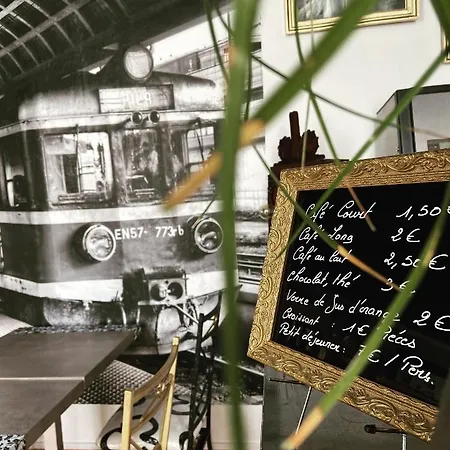 EN57-773-b
Café Court 1,50
Café Long 2€
Café au lait 2,50€
Chocolat, thé 3€
Verre de Jus d'orange 2€
Croissant : 1€ Pièces
Petit déjeuner : 7€/Pers.